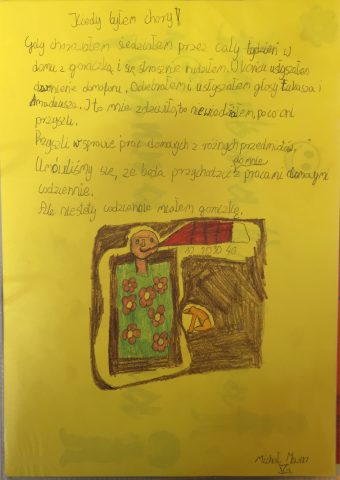 Kiedy byłem chory!
Gdy chorowałem siedziałem przez cały tydzień w
domu z gorączką i się strasznie nudziłem. W końcu usłyszałem
dzwonienie domofonu. Odebrałem i usłyszałem głosy Łukasza i
Amadeusza. I to mnie zdziwiło, bo nie wiedziałem, po co oni
przyszli.
Przyszli w sprawie prac domowych z różnych przedmiotów.
do mnie
Umówiliśmy się, ze będą przychodzić z pracami domowymi
codziennie.
Ale niestety codziennie miałem gorączkę.
10 20 30 40
Michał